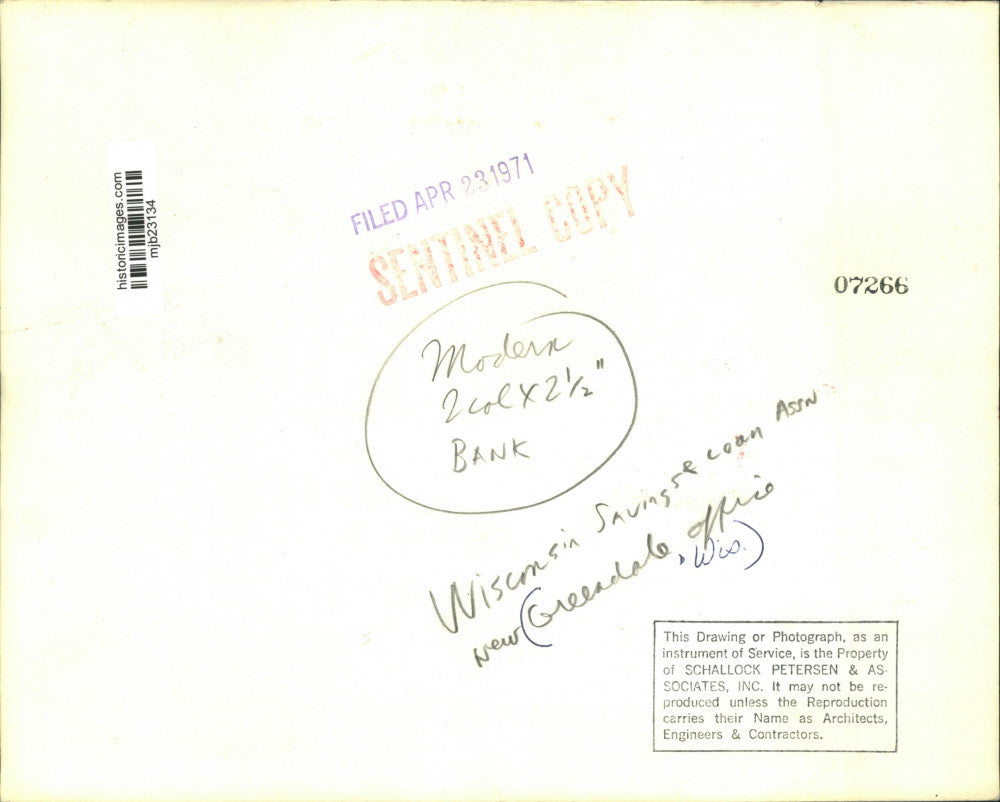 historicimages.com
mjb23134
FILED APR 231971
SENTINEL COPY
07266
Modern
2 col X 2 1/2"
BANK
Wisconsin Savings & Loan Assn
New (Greendale, Wis.) office
This Drawing or Photograph, as an
instrument of Service, is the Property
of SCHALLOCK PETERSEN & AS-
SOCIATES, INC. It may not be re-
produced unless the Reproduction
carries their Name as Architects,
Engineers & Contractors.